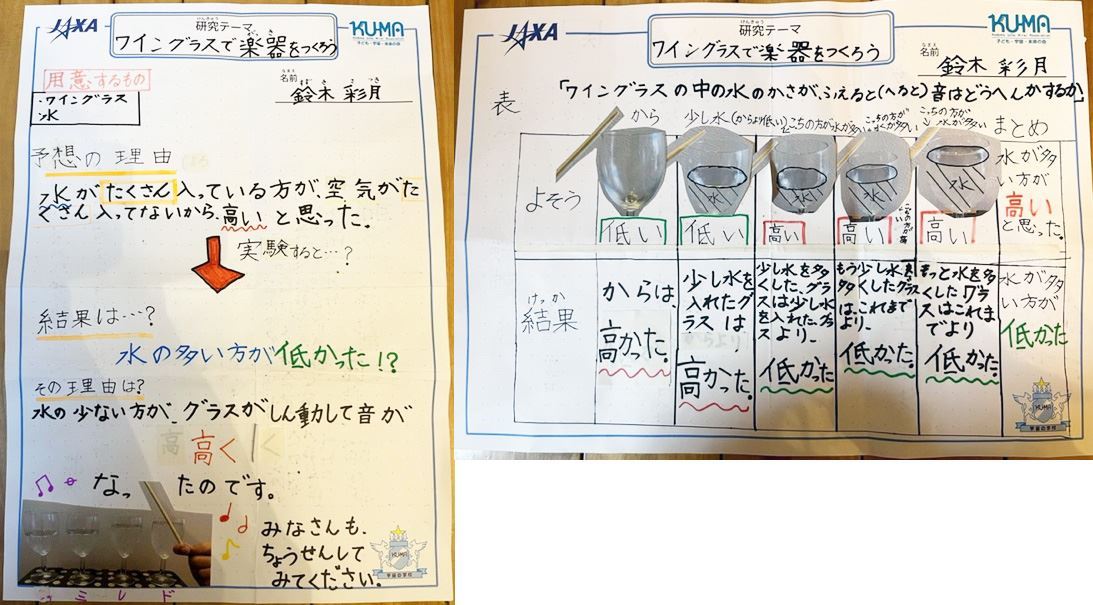 JAXA
けんきゅう
研究テーマ
ワイングラスで楽器をつくろう
KU-MA
子ども・宇宙・未来の会
用意するもの
・ワイングラス
・水
なまえ
名前
すずき さつき
鈴木 彩月
予想の理由
水がたくさん入っている方が、空気がた
くさん入ってないから、高いと思った。
実験すると…?
結果は…?
水の多い方が低かった!?
その理由は?
水の少ない方が、グラスがしん動して音が
高く
なったのです。
みなさんも、
ちょうせんして
みてください。
ミ レ ド
KUMA
宇宙の学校
JAXA
けんきゅう
研究テーマ
ワイングラスで楽器をつくろう
KU-MA
子ども・宇宙・未来の会
なまえ
名前
鈴木 彩月
表
「ワイングラスの中の水のかさが、ふえると(へると)音はどうへんかするか」
から
少し水(からより低い)
こっちの方が水が多い
こっちの方が水が多い
こっちの方が水が多い
まとめ
よそう
水
水
水
水
低い
低い
高い
高い
高い
水が多い方が高いと思った。
けっか
結果
からは、高かった。
少し水を入れたグラスは高かった。
少し水を多くした、グラスは少し水を入れたグラスより、低かった。
低かった。
もっと水を多くしたグラスはこれまでより低かった。
水が多い方が低かった
KUMA
宇宙の学校